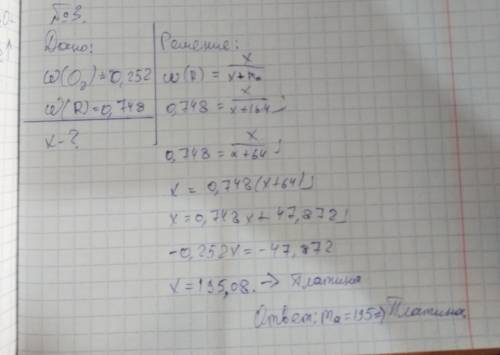 №3.
Дано:
ω(O₂) = 0,252
ω(R) = 0,748
x - ?
Решение:
ω(R) = x/(x+m₀)
0,748 = x/(x+164);
0,748 = x/(x+64);
x = 0,748(x+64);
x = 0,748x + 47,872;
-0,252x = -47,872
x = 195,08. -> Платина
Ответ: mₐ = 195 => Платина.